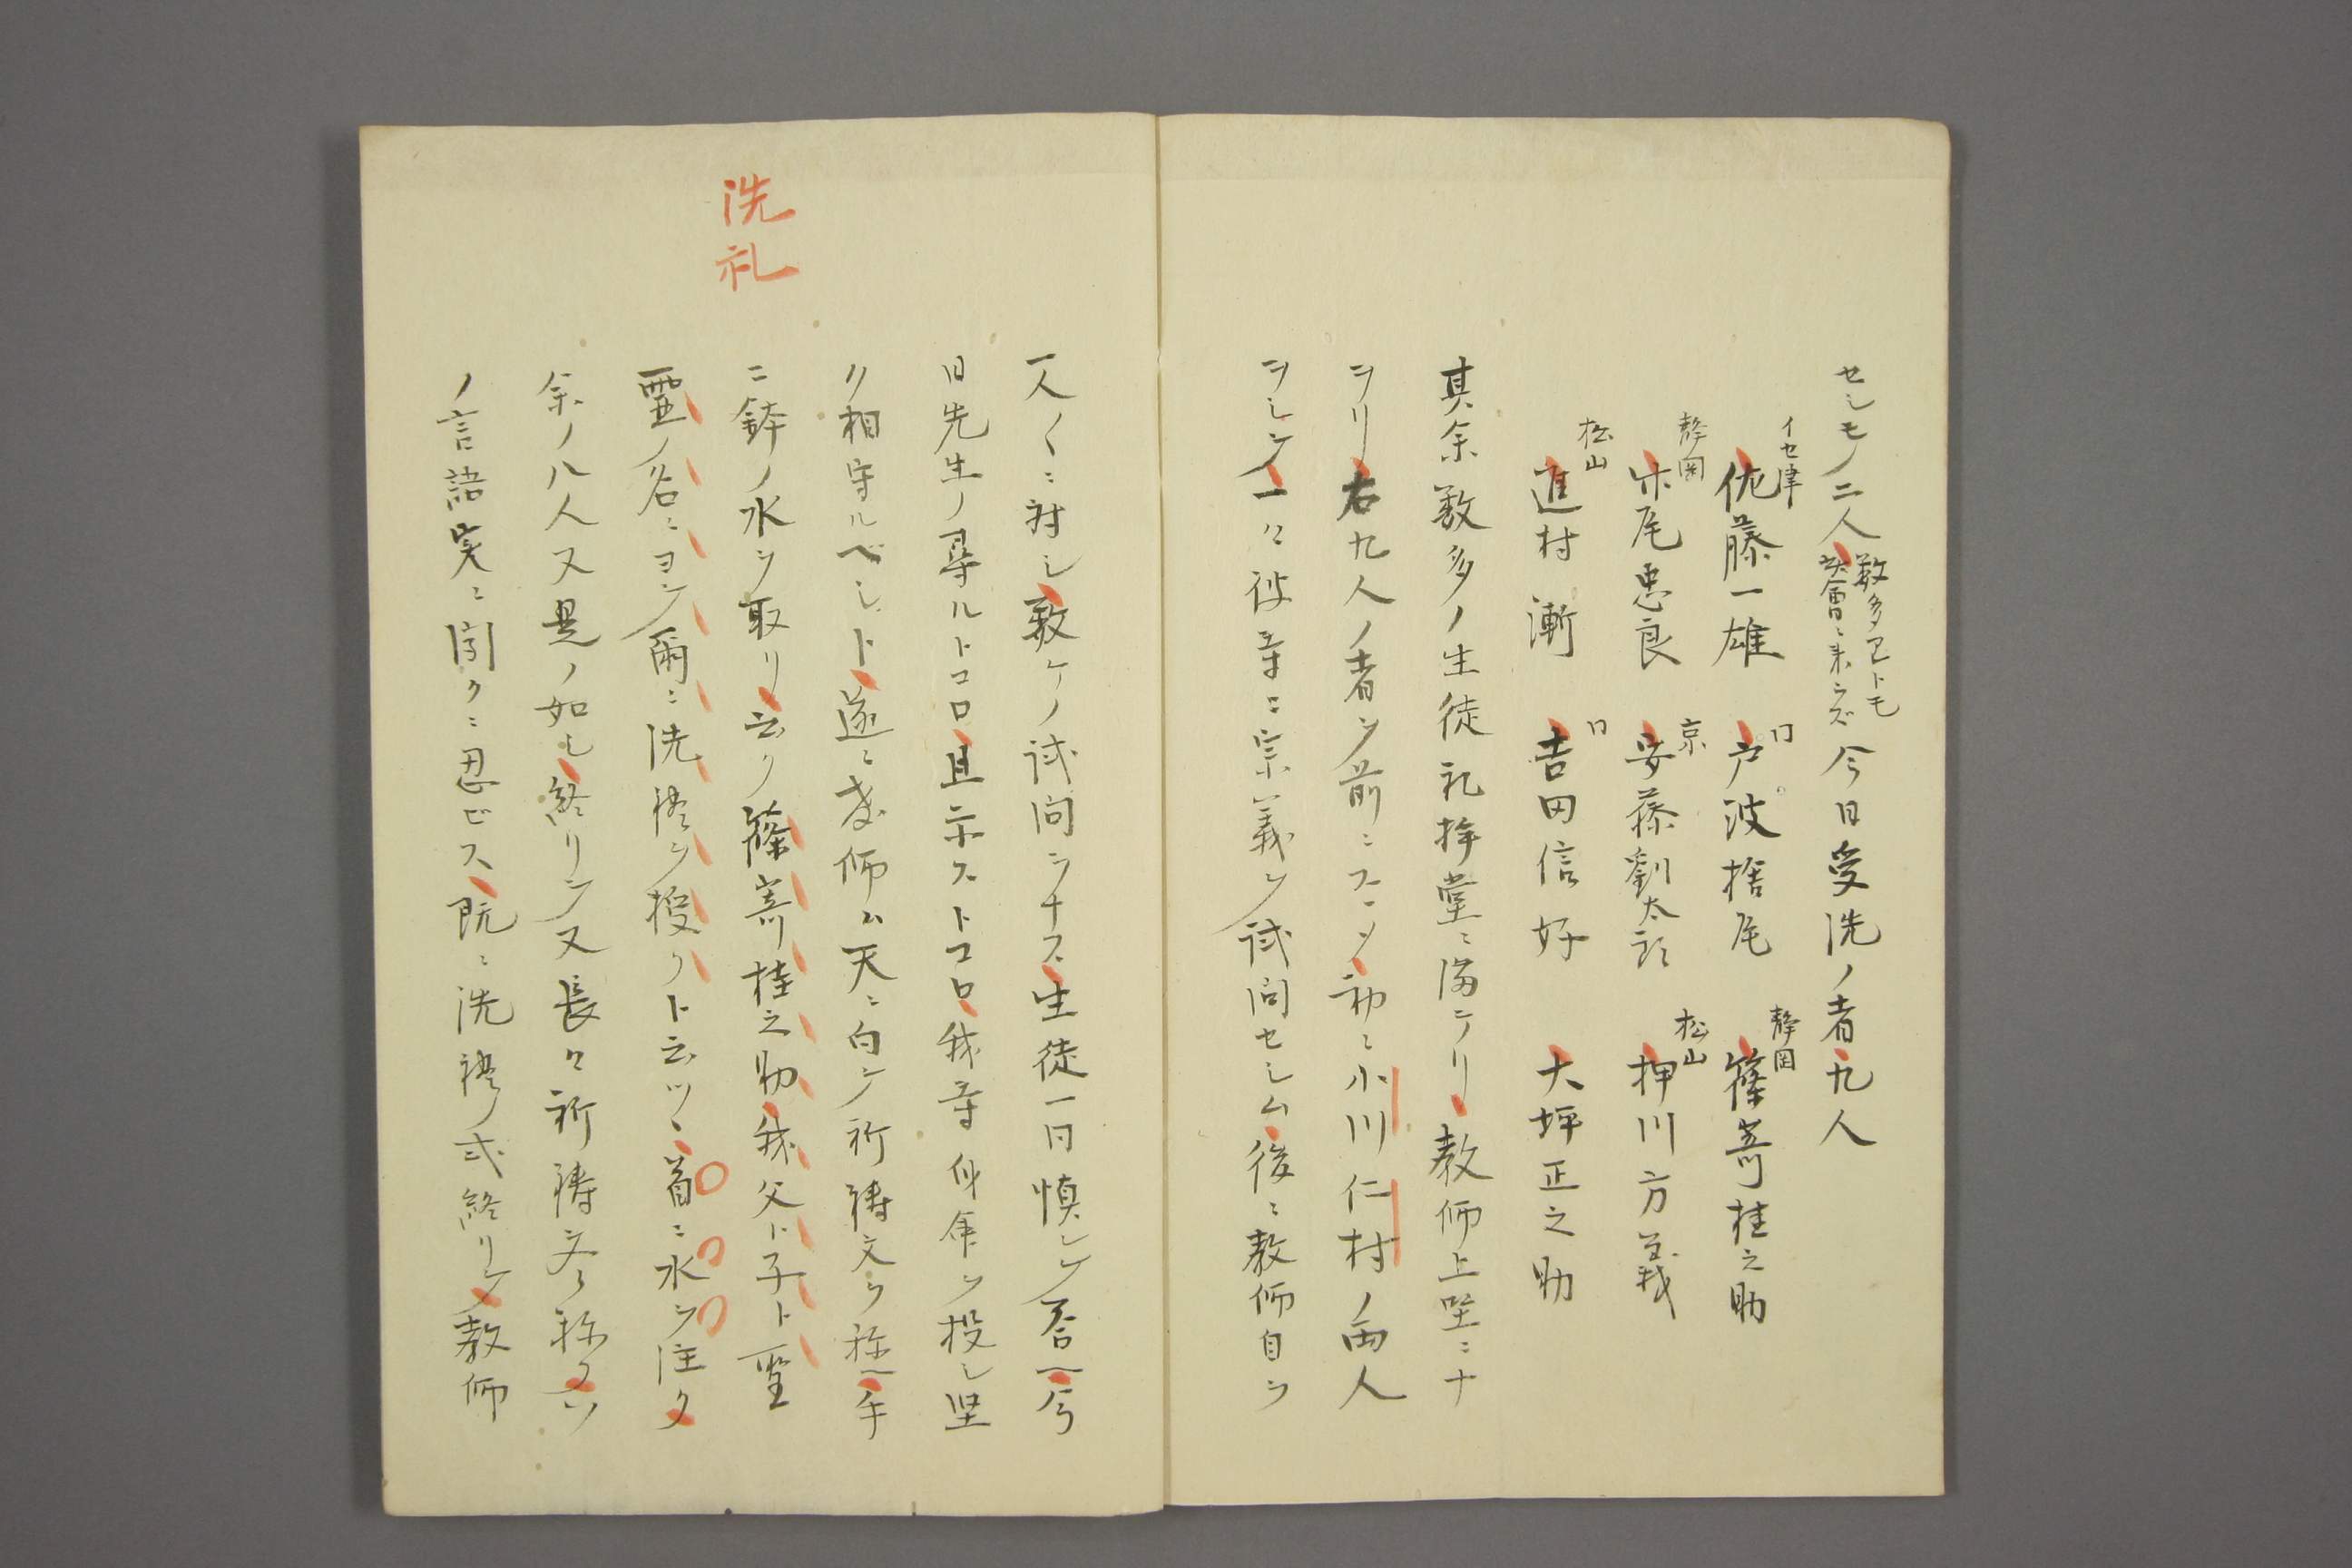 セシモノ二人 数多アレトモ 茲會ニ来ラズ 今日受洗ノ者九人
イセ津 佐藤一雄 仝 戸波捨尾 静岡 篠嵜桂之助
静岡 朱尾忠良 京 安藤劉太郎 松山 押川方義
松山 進村漸 仝 吉田信好 大坪正之助
其余数多ノ生徒礼拝堂ニ満テリ教師上坐ニナ
ヲリ右九人ノ者ヲ前ニスヽメ初ニ小川仁村ノ両人
ヲシテ一々彼寺ニ宗義ヲ試問セシム後ニ教師自ラ
一人〱ニ対シ数ケノ試問ヲナス生徒一同慎シテ答ヘ今
日先生ノ尋ルトコロ且示ストコロ我寺身命ヲ投シ堅
ク相守ルベシト遂ニ教師ハ天ニ向テ祈祷文ヲ称ヘ手
ニ鉢ノ水ヲ取リ云ク篠嵜桂之助我父ト子ト聖
霊ノ名ニヨツテ爾ニ洗禮ヲ授クト云ツヽ首ニ水ヲ注ク
余ノ八人又是ノ如シ終リテ又長々祈祷文ヲ称フソ
ノ言語実ニ聞クニ忍ビス既ニ洗禮ノ式終リテ教師
洗礼